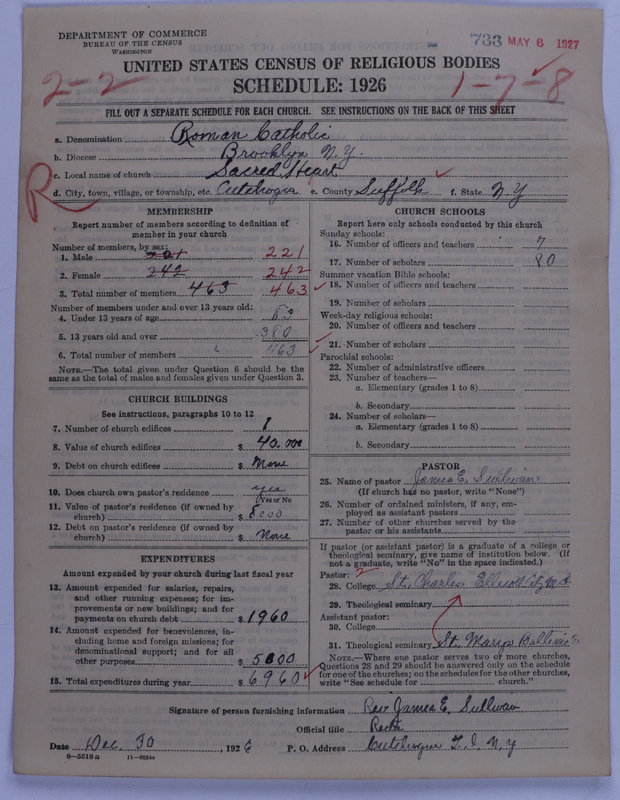 DEPARTMENT OF COMMERCE
BUREAU OF THE CENSUS
WASHINGTON
733 MAY 6 1927
UNITED STATES CENSUS OF RELIGIOUS BODIES
SCHEDULE: 1926
2-2
1-7-8
FILL OUT A SEPARATE SCHEDULE FOR EACH CHURCH. SEE INSTRUCTIONS ON THE BACK OF THIS SHEET
R
a. Denomination Roman Catholic
b. Diocese Brooklyn N.Y.
c. Local name of church Sacred Heart
d. City, town, village, or township, etc. Cutchogue e. County Suffolk f. State N.Y
MEMBERSHIP
Report number of members according to definition of
member in your church
Number of members, by sex:
1. Male 221 221
2. Female 242 242
3. Total number of members 463 463
Number of members under and over 13 years old:
4. Under 13 years of age 83
5. 13 years old and over 380
6. Total number of members " 463
NOTE.—The total given under Question 6 should be
same as the total of males and females given under Question 3.
CHURCH BUILDINGS
See instructions, paragraphs 10 to 12
7. Number of church edifices 1
8. Value of church edifices $ 40.000
9. Debt on church edifices $ None
10. Does church own pastor's residence yes
(Yes or No
11. Value of pastor's residence (if owned by
church) $ 8000
12. Debt on pastor's residence (if owned by
church) $ None
EXPENDITURES
Amount expended by your church during last fiscal year
13. Amount expended for salaries, repairs,
and other running expenses; for im-
provements or new buildings; and for
payments on church debt $ 1960
14. Amount expended for benevolences, in-
cluding home and foreign missions; for
denominational support; and for all
other purposes $ 5000
15. Total expenditures during year $ 6960
CHURCH SCHOOLS
Report here only schools conducted by this church
Sunday schools:
16. Number of officers and teachers 7
17. Number of scholars 80
Summer vacation Bible schools:
18. Number of officers and teachers
19. Number of scholars
Week-day religious schools:
20. Number of officers and teachers
21. Number of scholars
Parochial schools:
22. Number of administrative officers
23. Number of teachers—
a. Elementary (grades 1 to 8)
b. Secondary
24. Number of scholars—
a. Elementary (grades 1 to 8)
b. Secondary
PASTOR
25. Name of pastor James E. Sullivan
(If church has no pastor, write "None")
26. Number of ordained ministers, if any, em-
ployed as assistant pastors
27. Number of other churches served by the
pastor or his assistants
If pastor (or assistant pastor) is a graduate of a college or
theological seminary, give name of institution below. (If
not a graduate, write "No" in the space indicated.)
Pastor: 2
28. College St. Charles Ellicott City Md
29. Theological seminary
Assistant pastor:
30. College
31. Theological seminary St. Marys Baltimore
NOTE.—Where one pastor serves two or more churches,
Questions 28 and 29 should be answered only on the schedule
for one of the churches; on the schedules for the other churches,
write "See schedule for church."
Signature of person furnishing information Rev James E. Sullivan
Official title Rector
Date Dec. 30, 1926 P. O. Address Cutchogue L. I. N.Y
8—5518a